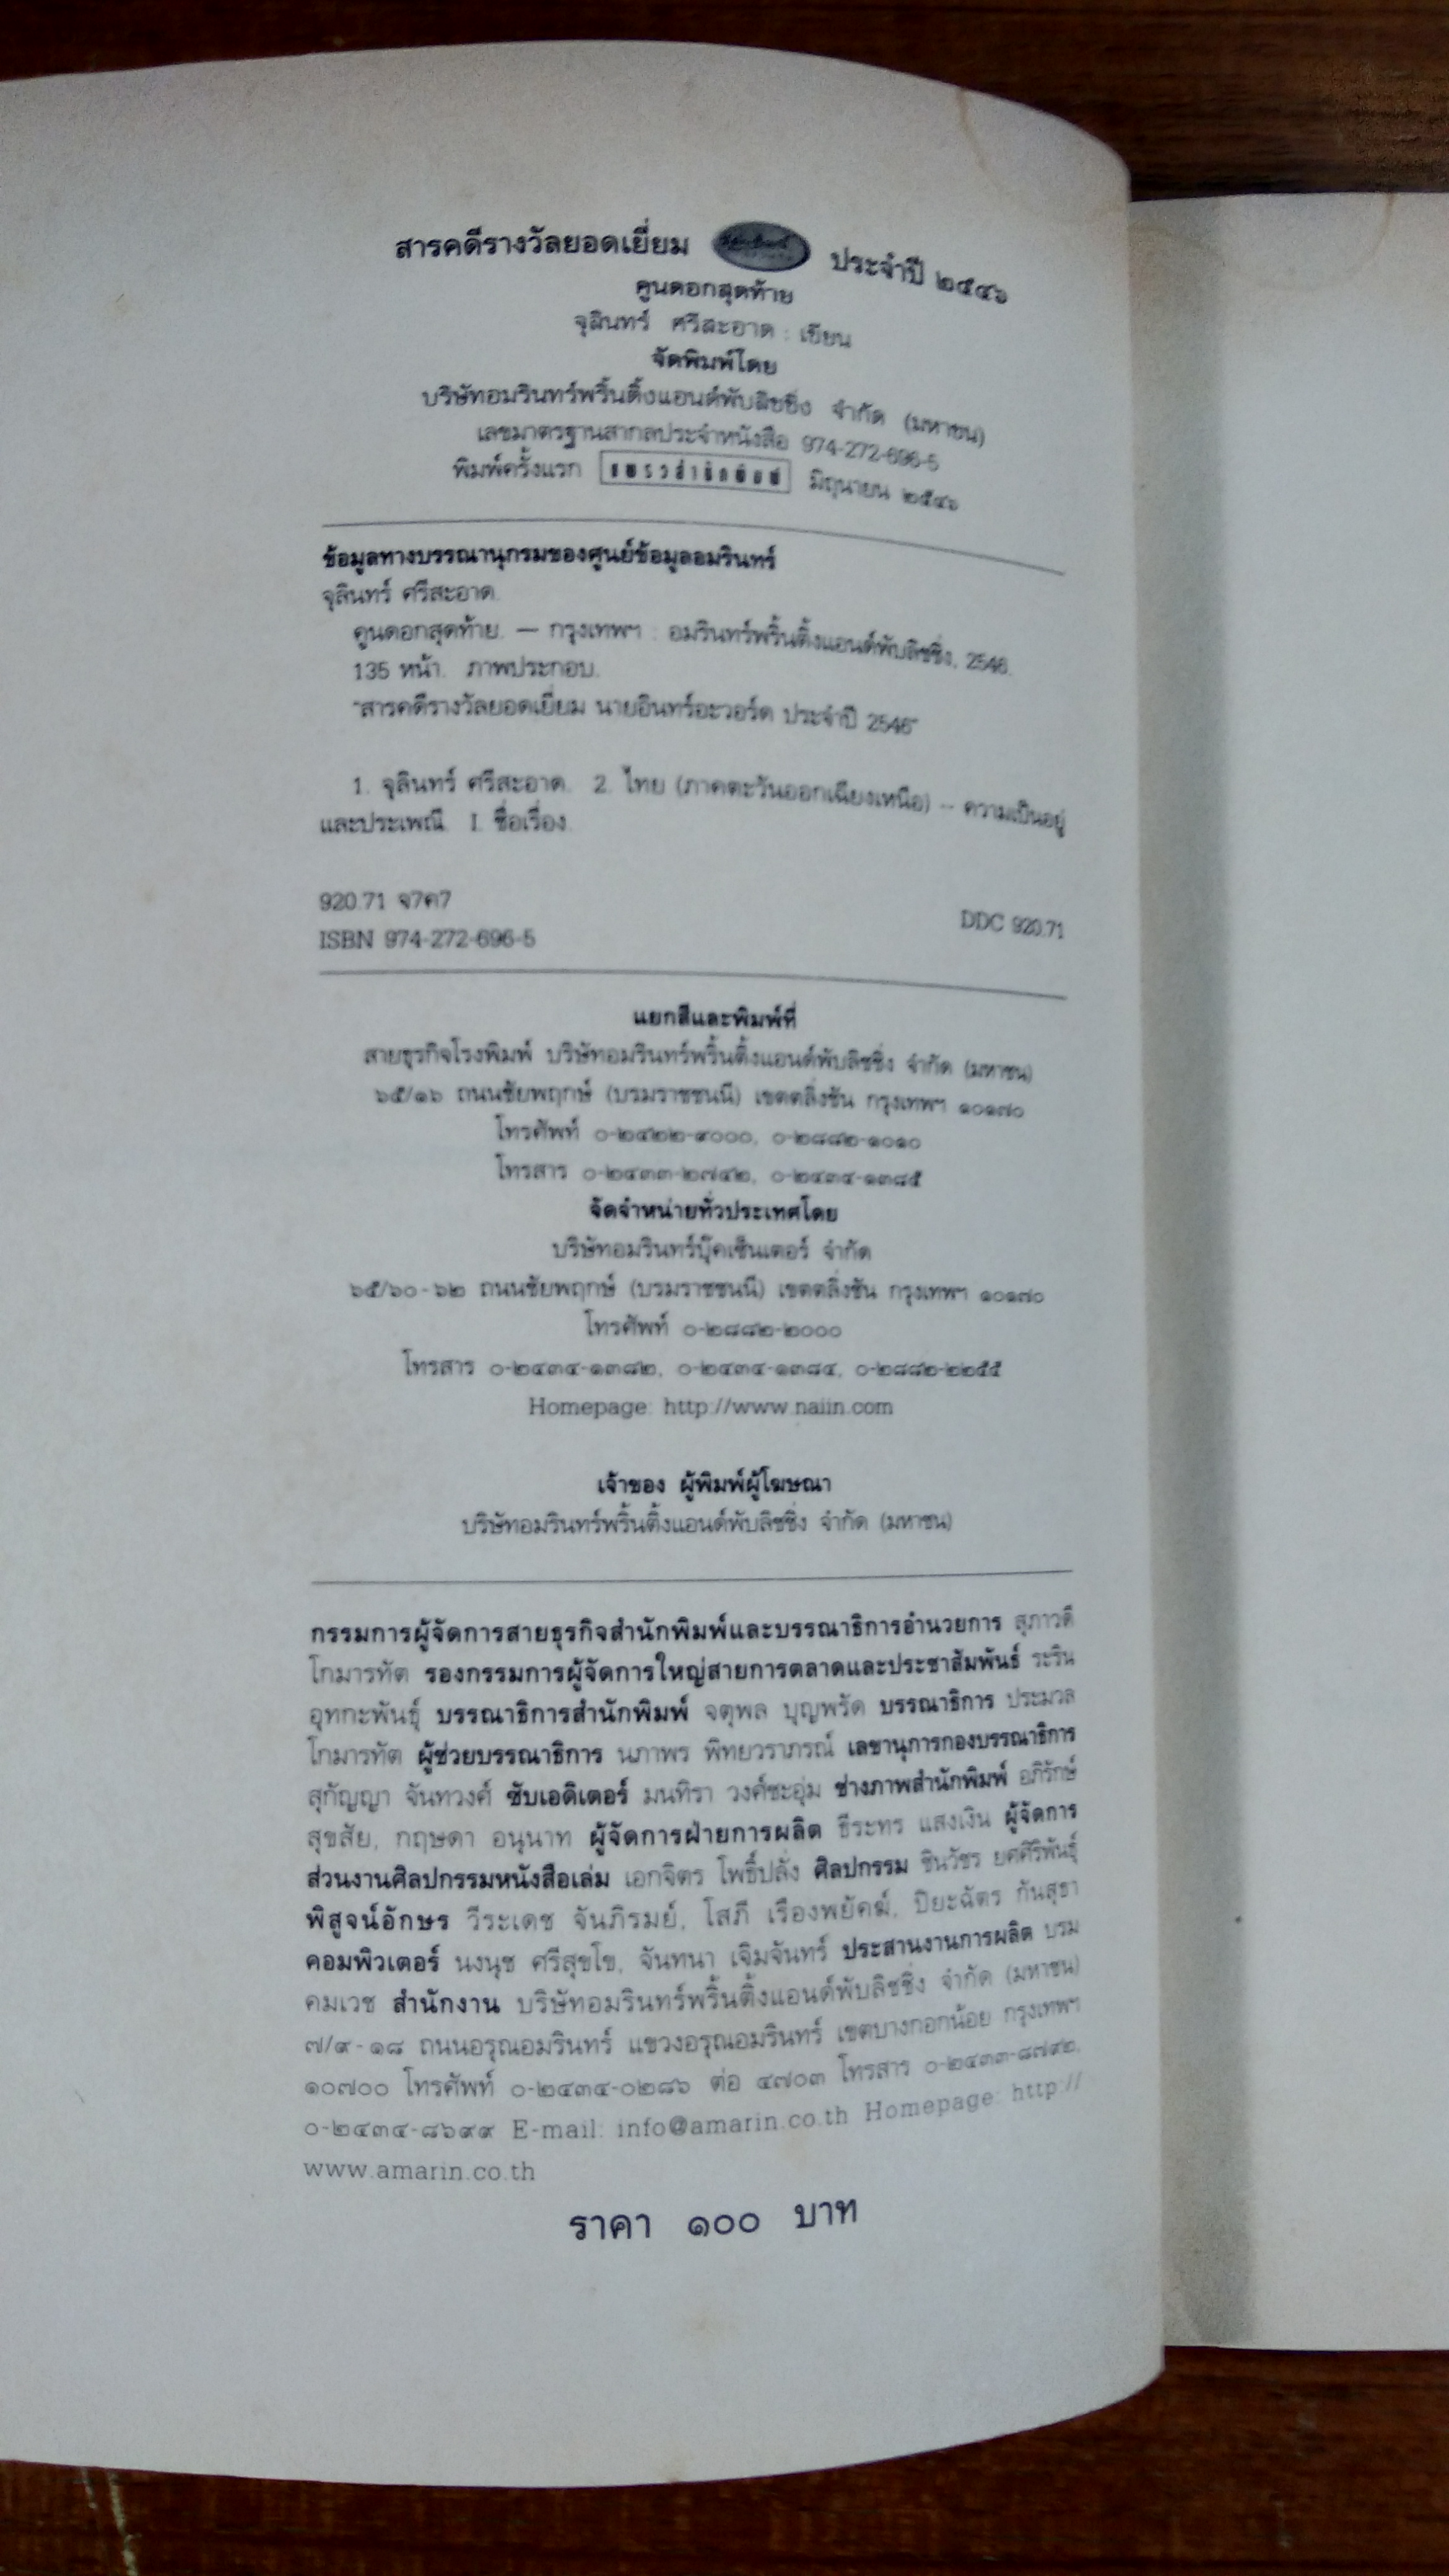 สารคดีรางวัลยอดเยี่ยม ประจำปี ๒๕๔๖
คูนดอกสุดท้าย
จุลินทร์ ศรีสะอาด : เขียน
จัดพิมพ์โดย
บริษัทอมรินทร์พริ้นติ้งแอนด์พับลิชชิ่ง จำกัด (มหาชน)
เลขมาตรฐานสากลประจำหนังสือ 974-272-696-5
พิมพ์ครั้งแรก แพรวสำนักพิมพ์ มิถุนายน ๒๕๔๖
ข้อมูลทางบรรณานุกรมของศูนย์ข้อมูลอมรินทร์
จุลินทร์ ศรีสะอาด.
คูนดอกสุดท้าย. — กรุงเทพฯ : อมรินทร์พริ้นติ้งแอนด์พับลิชชิ่ง, 2546.
135 หน้า. ภาพประกอบ.
"สารคดีรางวัลยอดเยี่ยม นายอินทร์อะวอร์ด ประจำปี 2546"
1. จุลินทร์ ศรีสะอาด. 2. ไทย (ภาคตะวันออกเฉียงเหนือ) -- ความเป็นอยู่
และประเพณี. I. ชื่อเรื่อง.
920.71 จ7ค7
DDC 920.71
ISBN 974-272-696-5
แยกสีและพิมพ์ที่
สายธุรกิจโรงพิมพ์ บริษัทอมรินทร์พริ้นติ้งแอนด์พับลิชชิ่ง จำกัด (มหาชน)
๖๕/๑๖ ถนนชัยพฤกษ์ (บรมราชชนนี) เขตตลิ่งชัน กรุงเทพฯ ๑๐๑๗๐
โทรศัพท์ ๐-๒๔๒๒-๙๐๐๐, ๐-๒๘๘๒-๑๐๑๐
โทรสาร ๐-๒๔๓๓-๒๗๔๒, ๐-๒๔๓๔-๑๓๘๕
จัดจำหน่ายทั่วประเทศโดย
บริษัทอมรินทร์บุ๊คเซ็นเตอร์ จำกัด
๖๕/๖๐-๖๒ ถนนชัยพฤกษ์ (บรมราชชนนี) เขตตลิ่งชัน กรุงเทพฯ ๑๐๑๗๐
โทรศัพท์ ๐-๒๘๘๒-๒๐๐๐
โทรสาร ๐-๒๔๓๔-๑๓๘๒, ๐-๒๔๓๔-๑๓๘๔, ๐-๒๘๘๒-๒๒๕๕
Homepage: http://www.naiin.com
เจ้าของ ผู้พิมพ์ผู้โฆษณา
บริษัทอมรินทร์พริ้นติ้งแอนด์พับลิชชิ่ง จำกัด (มหาชน)
กรรมการผู้จัดการสายธุรกิจสำนักพิมพ์และบรรณาธิการอำนวยการ สุภาวดี
โกมารทัต รองกรรมการผู้จัดการใหญ่สายการตลาดและประชาสัมพันธ์ ระริน
อุทกะพันธุ์ บรรณาธิการสำนักพิมพ์ จตุพล บุญพรัด บรรณาธิการ ประมวล
โกมารทัต ผู้ช่วยบรรณาธิการ นภาพร พิทยวราภรณ์ เลขานุการกองบรรณาธิการ
สุกัญญา จันทวงศ์ ซับเอดิเตอร์ มนทิรา วงศ์ชะอุ่ม ช่างภาพสำนักพิมพ์ อภิรักษ์
สุขสัย, กฤษดา อนุนาท ผู้จัดการฝ่ายการผลิต ธีระทร แสงเงิน ผู้จัดการ
ส่วนงานศิลปกรรมหนังสือเล่ม เอกจิตร โพธิ์ปลั่ง ศิลปกรรม ชินวัชร ยศศิริพันธุ์
พิสูจน์อักษร วีระเดช จันภิรมย์, โสภี เรืองพยัคฆ์, ปิยะฉัตร กันสุธา
คอมพิวเตอร์ นงนุช ศรีสุขโข, จันทนา เจิมจันทร์ ประสานงานการผลิต บรม
คมเวช สำนักงาน บริษัทอมรินทร์พริ้นติ้งแอนด์พับลิชชิ่ง จำกัด (มหาชน)
๗/๙-๑๘ ถนนอรุณอมรินทร์ แขวงอรุณอมรินทร์ เขตบางกอกน้อย กรุงเทพฯ
๑๐๗๐๐ โทรศัพท์ ๐-๒๔๓๔-๐๒๘๖ ต่อ ๔๗๐๓ โทรสาร ๐-๒๔๓๓-๘๗๙๒,
๐-๒๔๓๔-๘๖๙๙ E-mail: info@amarin.co.th Homepage: http://
www.amarin.co.th
ราคา ๑๐๐ บาท